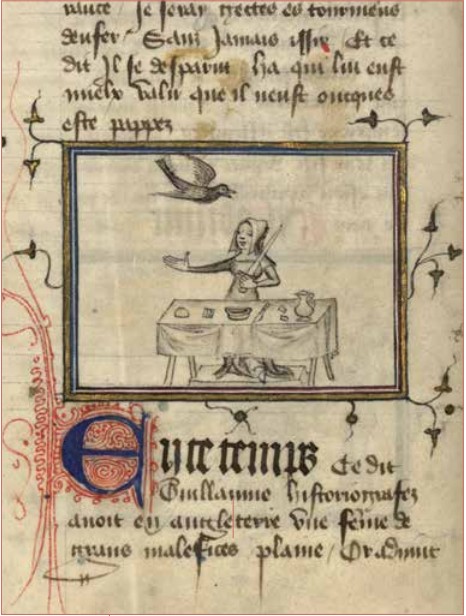 rance / Je seray gectes es tourmens
denfer Sanz Jamais issir Et ce
dit Il se desparut ha qui lui eust
mielx valu que il neust oncques
este pappez
En ce temps Ce dit
Guillaume historiografez
auoit en angleterre vne feme de
grans malefices plaine / Or aduint